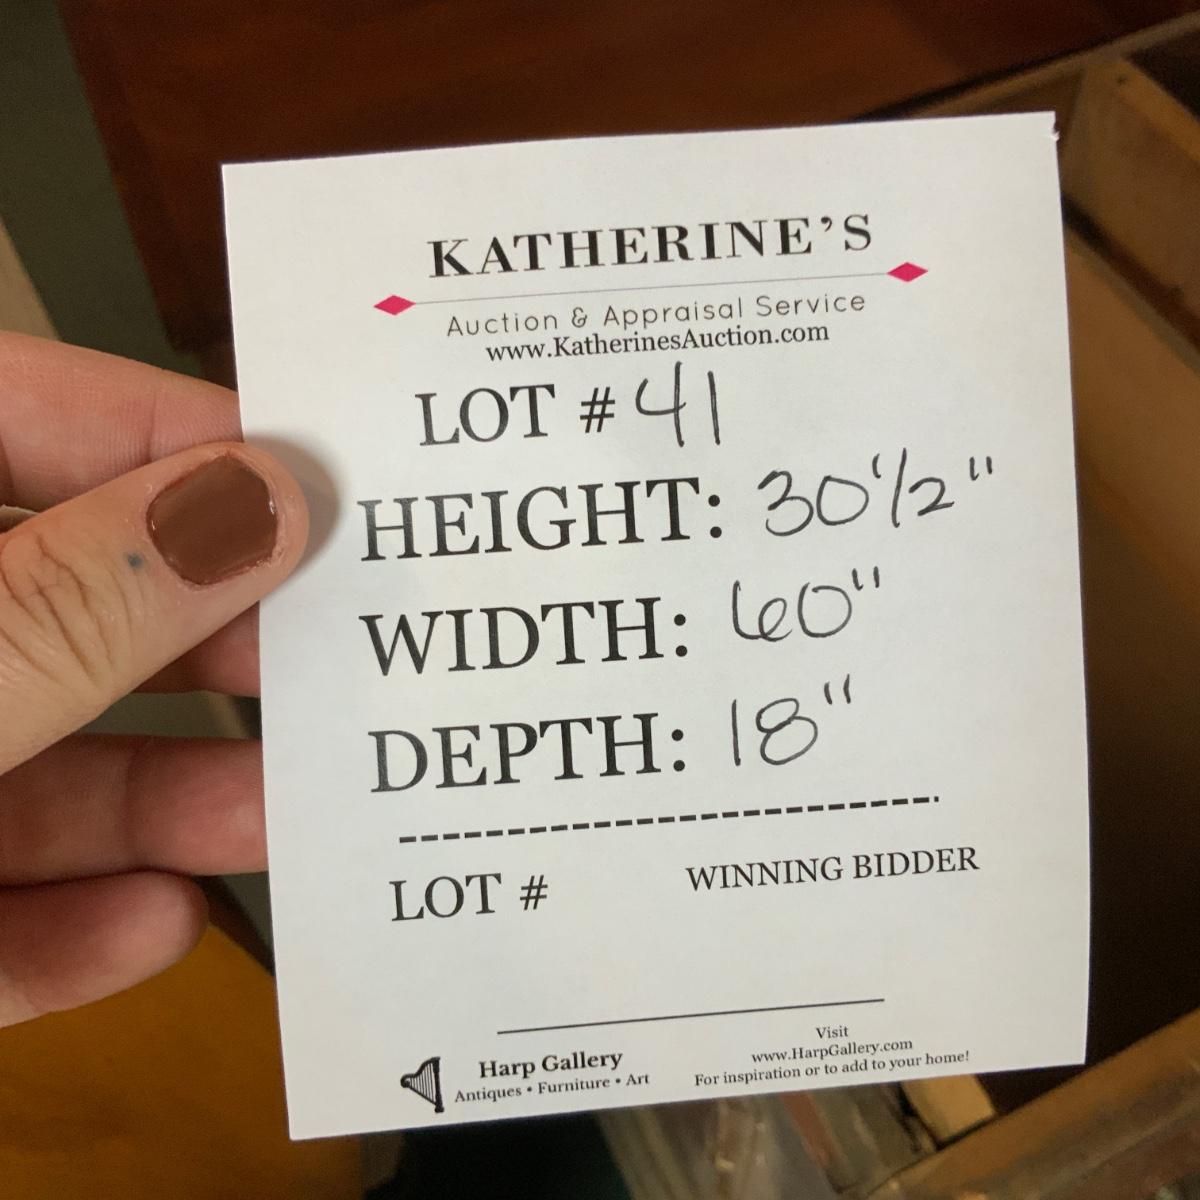 KATHERINE'S
Auction & Appraisal Service
www.KatherinesAuction.com
LOT # 41
HEIGHT: 30 1/2"
WIDTH: 60"
DEPTH: 18"
LOT # WINNING BIDDER
Harp Gallery
Antiques • Furniture • Art
Visit
www.HarpGallery.com
For inspiration or to add to your home!